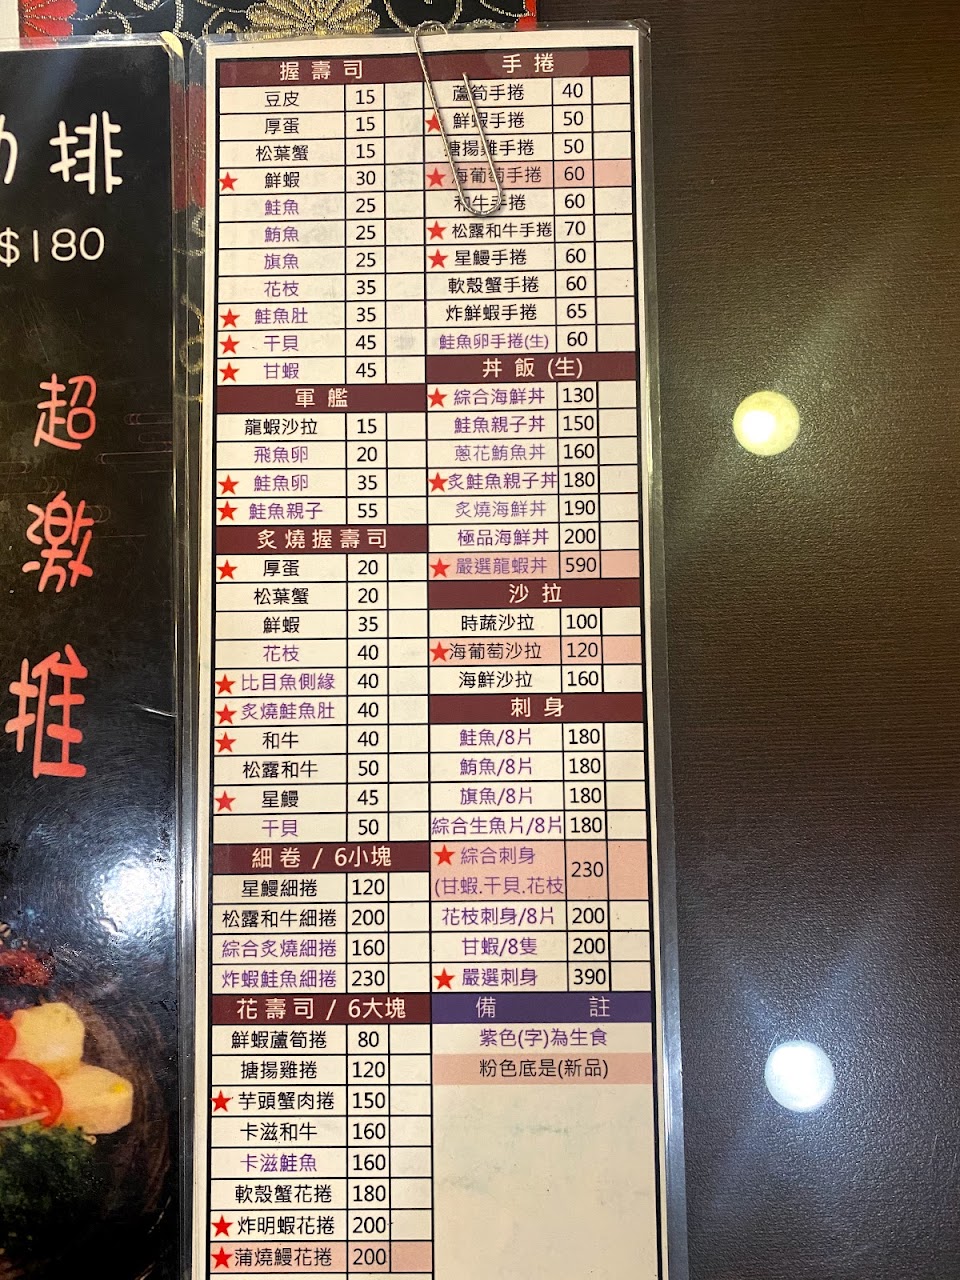 排
$180
超
激
推
握壽司
豆皮 15
厚蛋 15
松葉蟹 15
★ 鮮蝦 30
鮭魚 25
鮪魚 25
旗魚 25
花枝 35
★ 鮭魚肚 35
★ 干貝 45
★ 甘蝦 45
軍艦
龍蝦沙拉 15
飛魚卵 20
★ 鮭魚卵 35
★ 鮭魚親子 55
炙燒握壽司
★ 厚蛋 20
松葉蟹 20
鮮蝦 35
花枝 40
★ 比目魚側緣 40
★ 炙燒鮭魚肚 40
★ 和牛 40
松露和牛 50
★ 星鰻 45
干貝 50
細卷 / 6小塊
星鰻細捲 120
松露和牛細捲 200
綜合炙燒細捲 160
炸蝦鮭魚細捲 230
花壽司 / 6大塊
鮮蝦蘆筍捲 80
搪揚雞捲 120
★ 芋頭蟹肉捲 150
卡滋和牛 160
卡滋鮭魚 160
軟殼蟹花捲 180
★ 炸明蝦花捲 200
★ 蒲燒鰻花捲 200
手捲
蘆筍手捲 40
★ 鮮蝦手捲 50
搪揚雞手捲 50
★ 海葡萄手捲 60
和牛手捲 60
★ 松露和牛手捲 70
★ 星鰻手捲 60
軟殼蟹手捲 60
炸鮮蝦手捲 65
鮭魚卵手捲(生) 60
丼飯 (生)
★ 綜合海鮮丼 130
鮭魚親子丼 150
蔥花鮪魚丼 160
★ 炙鮭魚親子丼 180
炙燒海鮮丼 190
極品海鮮丼 200
★ 嚴選龍蝦丼 590
沙拉
時蔬沙拉 100
★ 海葡萄沙拉 120
海鮮沙拉 160
刺身
鮭魚/8片 180
鮪魚/8片 180
旗魚/8片 180
綜合生魚片/8片 180
★ 綜合刺身 230
(甘蝦.干貝.花枝
花枝刺身/8片 200
甘蝦/8隻 200
★ 嚴選刺身 390
備註
紫色(字)為生食
粉色底是(新品)